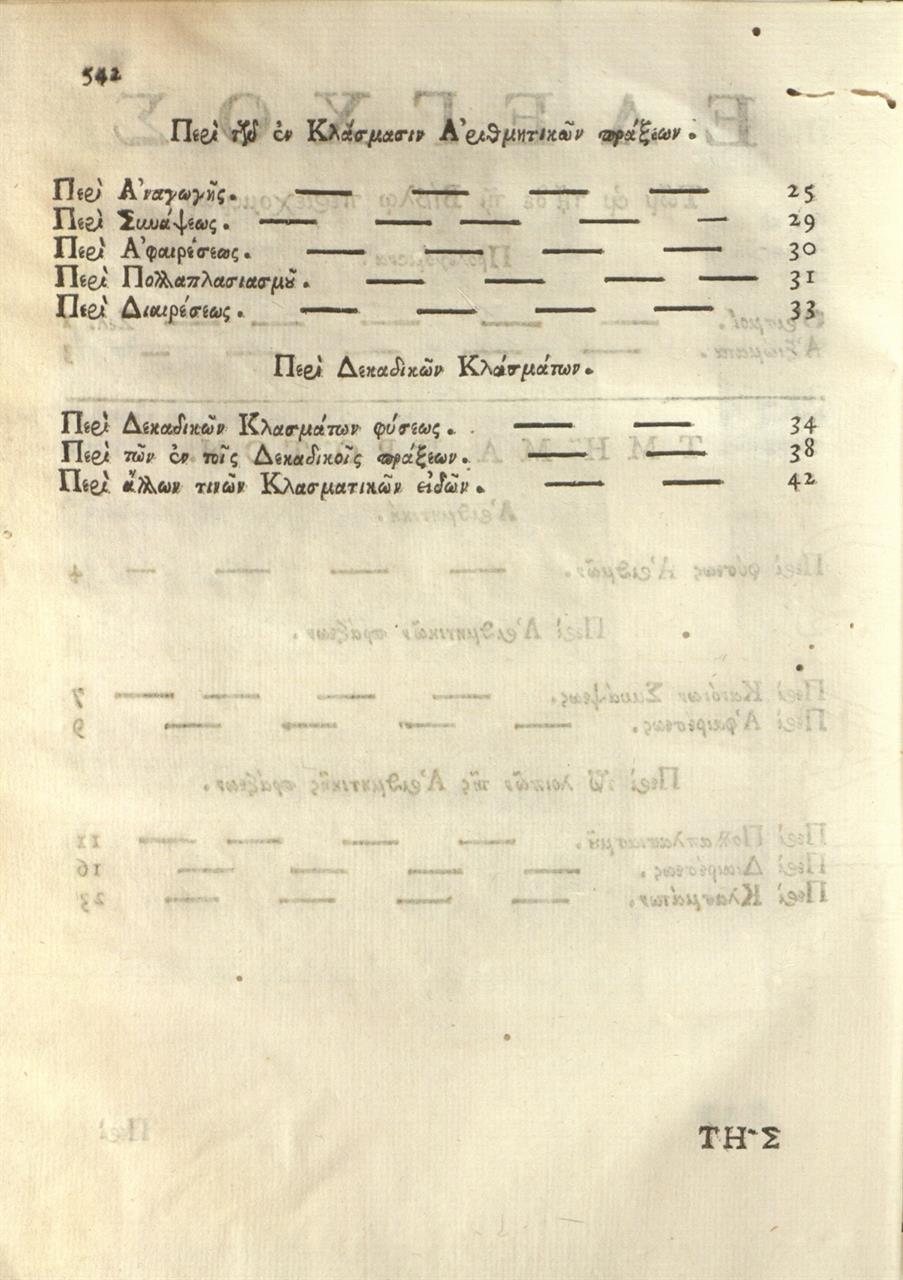 542
Περὶ τῶν ἐν Κλάσμασιν Ἀριθμητικῶν πράξεων.
Περὶ Ἀναγωγῆς. — — — — 25
Περὶ Συνάψεως. — — — — — 29
Περὶ Ἀφαιρέσεως. — — — — 30
Περὶ Πολλαπλασιασμοῦ. — — — — 31
Περὶ Διαιρέσεως. — — — — 33
Περὶ Δεκαδικῶν Κλάσμάτων.
Περὶ Δεκαδικῶν Κλασμάτων φύσεως. — — 34
Περὶ τῶν ἐν τοῖς Δεκαδικοῖς πράξεων. — — 38
Περὶ ἄλλων τινῶν Κλασματικῶν εἰδῶν. — — 42
ΤΗ͂Σ